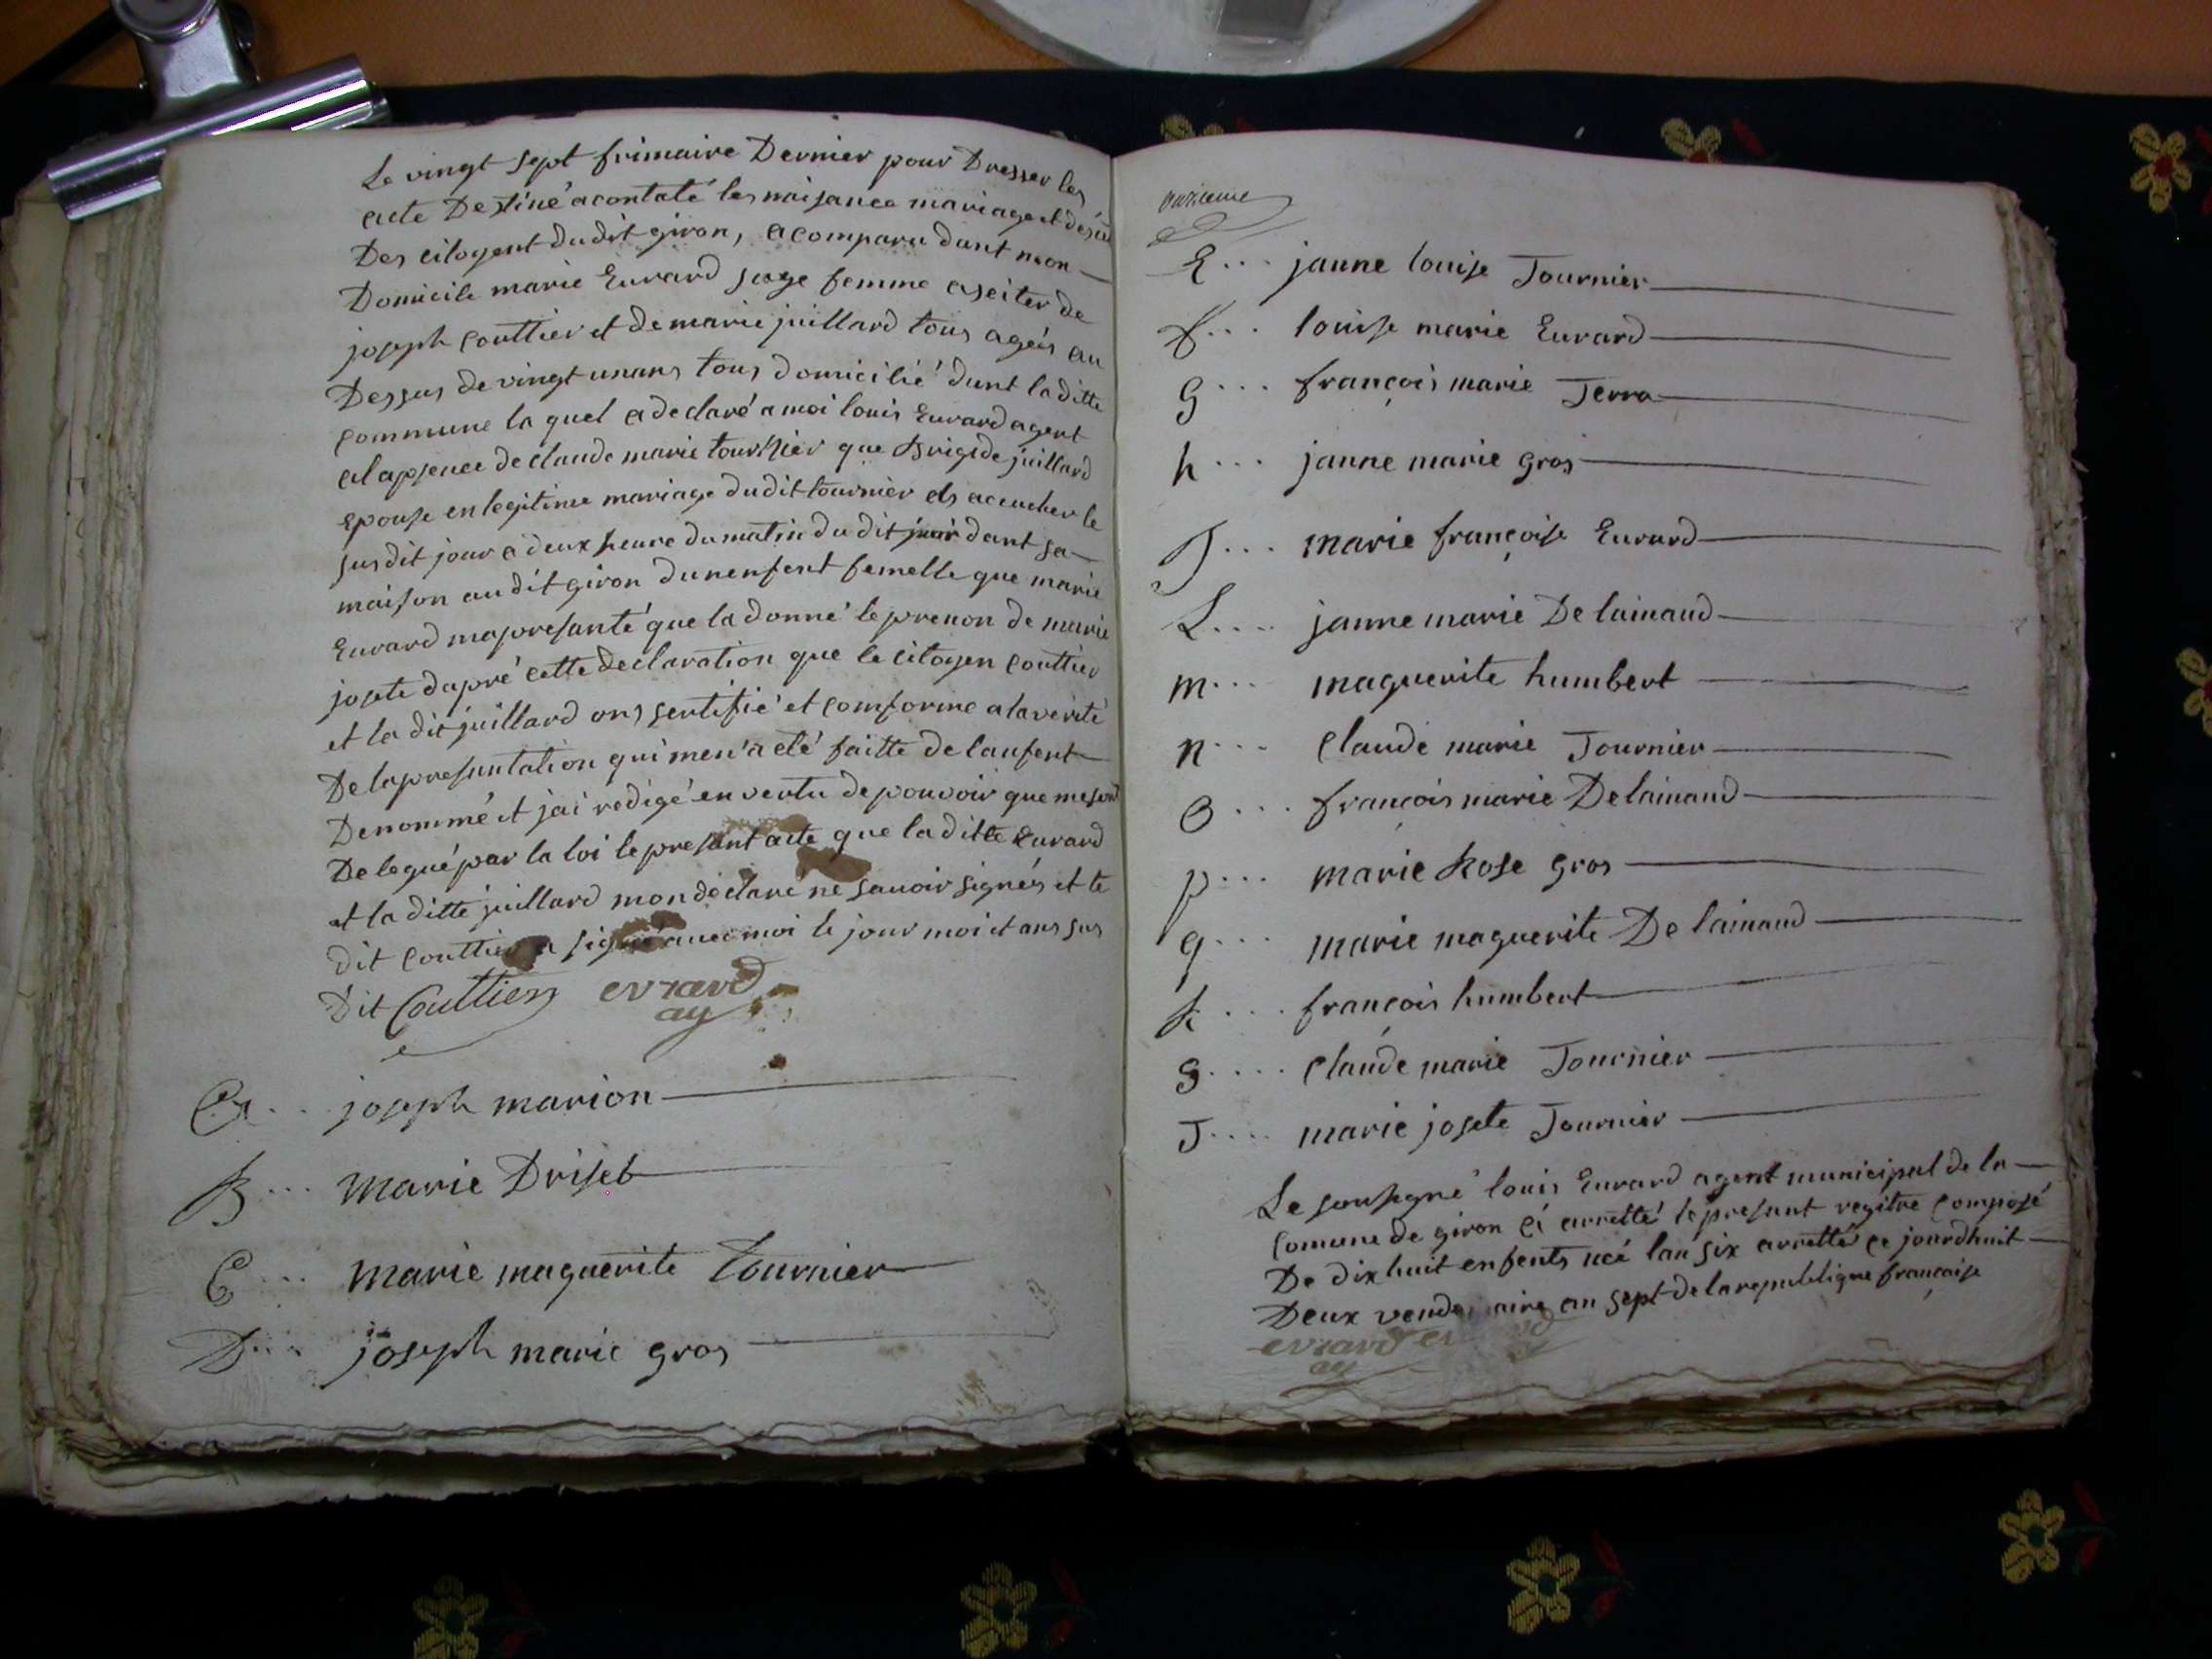 Le vingt sept frimaire Dernier pour Dresser les
acte Destiné a contaté les naisance mariage et desés
Des citogent du dit giron, a comparu dant mon
Domicile marie Eurard sage femme aseiter de
joseph Couttier et de marie juillard tous ageés au
Dessus de vingt unans tous domicilié dant la ditte
Commune la quel a declaré a moi louis Eurard agent
al apsence de claude marie tournier que Brigide juillard
Epouse en legitime mariage du dit tournier els accucher le
susdit jour a deux heure du matin du dit jour dant sa
maison au dit giron dun enfent femelle que marie
Eurard ma presanté que la donné le prenon de marie
josete dapré cette declaration que le citoyen Couttier
et la dit juillard ons sertifié et comforme a la verité
De la presantation qui men'a eté faitte de lanfent
Denommé et jai redigé en vertu de pouvoir que me sont
Delegué par la loi le presant acte que la ditte Eurard
et la ditte juillard mon déclaré ne savoir signés et le
dit Couttier a signé avec moi le jour moi et ans sus
Dit Couttier evrard
ag
A... joseph marion
B... Marie Driset
C... Marie maguerite Tournier
D... joseph marie gros
onzieme
E... janne louise Tournier
f... louise marie Eurard
G... françois marie Terra
h... janne marie gros
J... marie françoise Eurard
L.... janne marie De lainaud
m... maguerite humbert
n... Claude marie Tournier
O... françois marie Delainaud
p... marie Rose gros
q... marie maguerite De lainaud
R... françois humbert
S.... Claude marie Tournier
T.... marie josete Tournier
Le sousigné louis Eurard agent municipal de la
Comune de giron ei arretté le presant regitre Composé
De dix huit enfents neé lan six arretté ce jourdhuit
Deux aire an sept de la republique française
evrard
ag